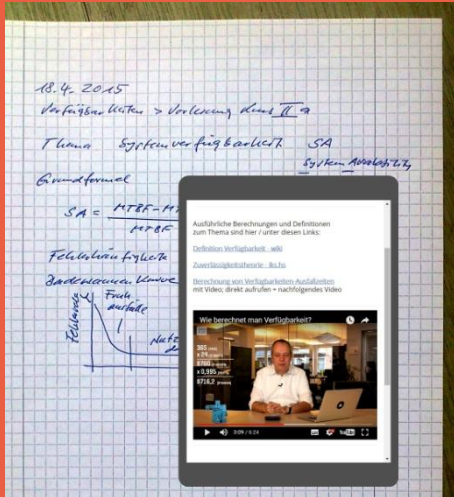 18.4. 2015
Verfügbarkeiten > Vorlesung II a
Thema Systemverfügbarkeit SA
System Availability
Grundformel
SA = MTBF - M
MTBF
Fehlerhäufigkeit
Badewannen Kurve
Fehlerrate
Früh-
ausfälle
Nutz
Ausführliche Berechnungen und Definitionen
zum Thema sind hier / unter diesen Links:
Definition Verfügbarkeit - wiki
Zuverlässigkeitstheorie - iks.hs
Berechnung von Verfügbarkeiten-Ausfallzeiten
mit Video; direkt aufrufen = nachfolgendes Video
Wie berechnet man Verfügbarkeit?
365
x 24
8760
x 0,995
8716,2
3:09 / 6:24